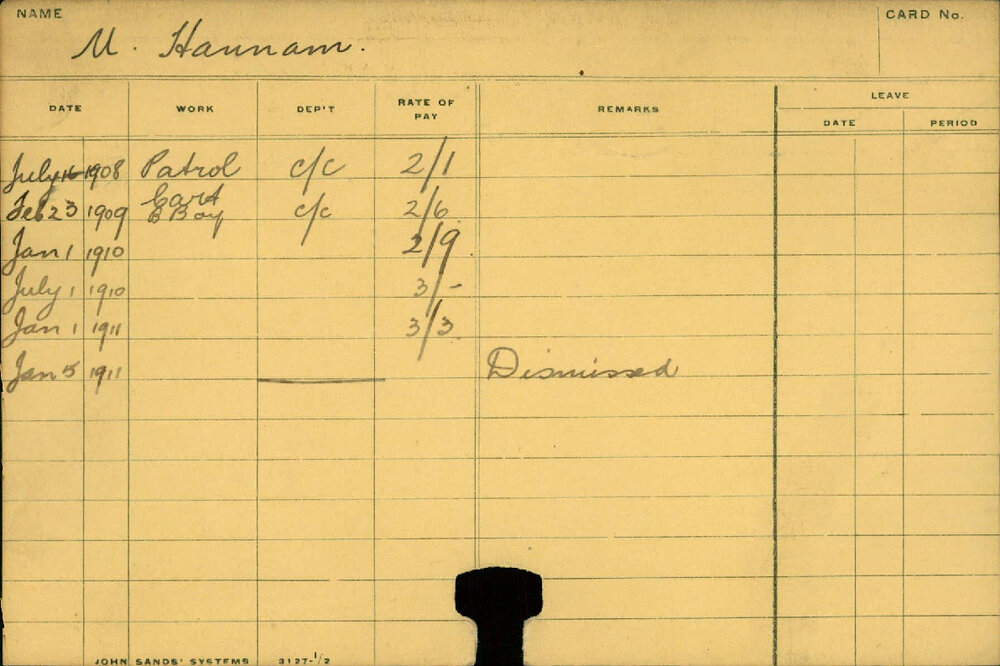 NAME M. Hannam. CARD No.
DATE WORK DEP'T RATE OF PAY REMARKS LEAVE
DATE PERIOD
July 16 1908 Patrol c/c 2/1
Feb 23 1909 Cart Boy c/c 2/6
Jan 1 1910 2/9
July 1 1910 3/-
Jan 1 1911 3/3
Jan 15 1911 Dismissed
JOHN SANDS' SYSTEMS 3127-1/2